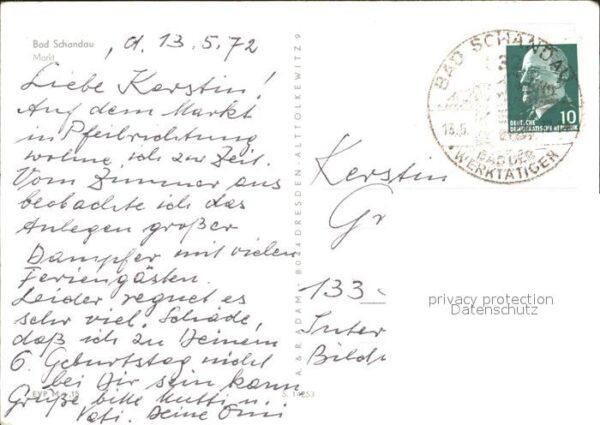 Bad Schandau
Markt
, d. 13.5.72
Liebe Kerstin!
Auf dem Markt
in Pfeilrichtung
wohne ich zur Zeit.
Vom Zimmer aus
beobachte ich das
Anlegen großer
Dampfer mit vielen
Feriengästen.
Leider regnet es
sehr viel. Schade,
daß ich zu Deinem
6. Geburtstag nicht
bei Dir sein kann
Grüße bitte Mutti u.
Vati. Deine Omi
S. 14253
A. & R. ADAM, 8024 DRESDEN, ALTTOLKEWITZ 9
BAD SCHANDAU
13.5.
BAD DER
WERKTÄTIGEN
10
DEUTSCHE
DEMOKRATISCHE REPUBLIK
Kerstin
Gr
133
Inter
Bild
privacy protection
Datenschutz